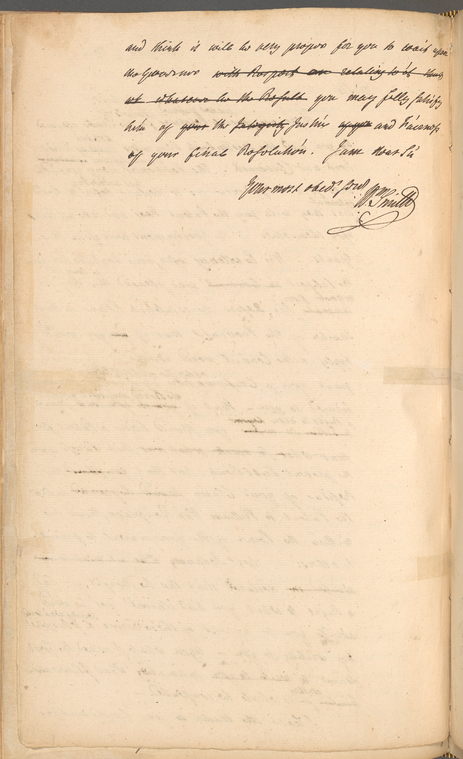 and think it will be very proper for you to wait upon
the Governor with Respect an relating to it
at whatever be the Result you may fully satisfy
him of your the Integrity Justice and Fairness
of your final Resolution. I am Dear Sir
Your most obed. Serv.
Wm Smith